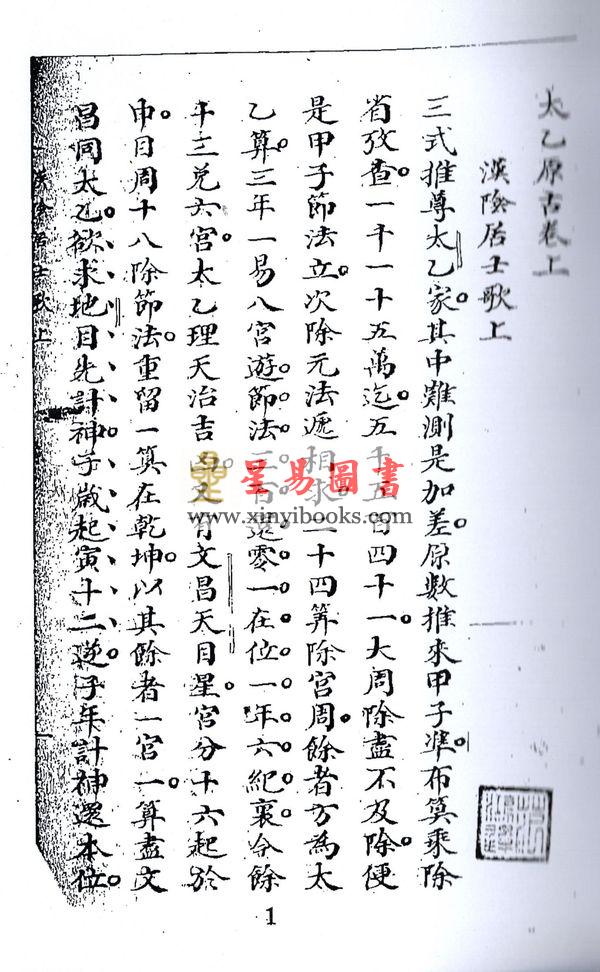 太乙原古卷上
漢陰居士歌上
三式推尊太乙家。其中難測是加差。原數推來甲子準。布算乘除
省。攷查一千一十五萬迄。五千五百四十一。大周除盡不及除。便
是甲子節法立。次除元法遞相求。二十四筭除宮周。餘者方為太
乙算。三年一易八宮遊。節法三百還零一。在位一年六紀裏。合餘
年三兌六宮。太乙理天治吉凶。又有文昌天目星。宮分十六起於
申。目周十八除節法。重留一算在乾坤。以其餘者一宮一算盡。文
昌同太乙。欲求地目先計神。子歲起寅十二逆。子年計神還本位。
漢陰居士歌上
星易圖書
www.xinyibooks.com
1